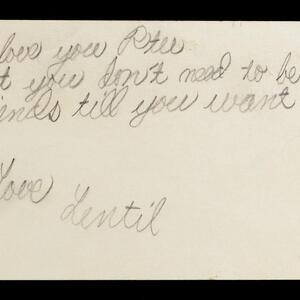 love you
t you don't need to be
iends till you want
Love
Lentil